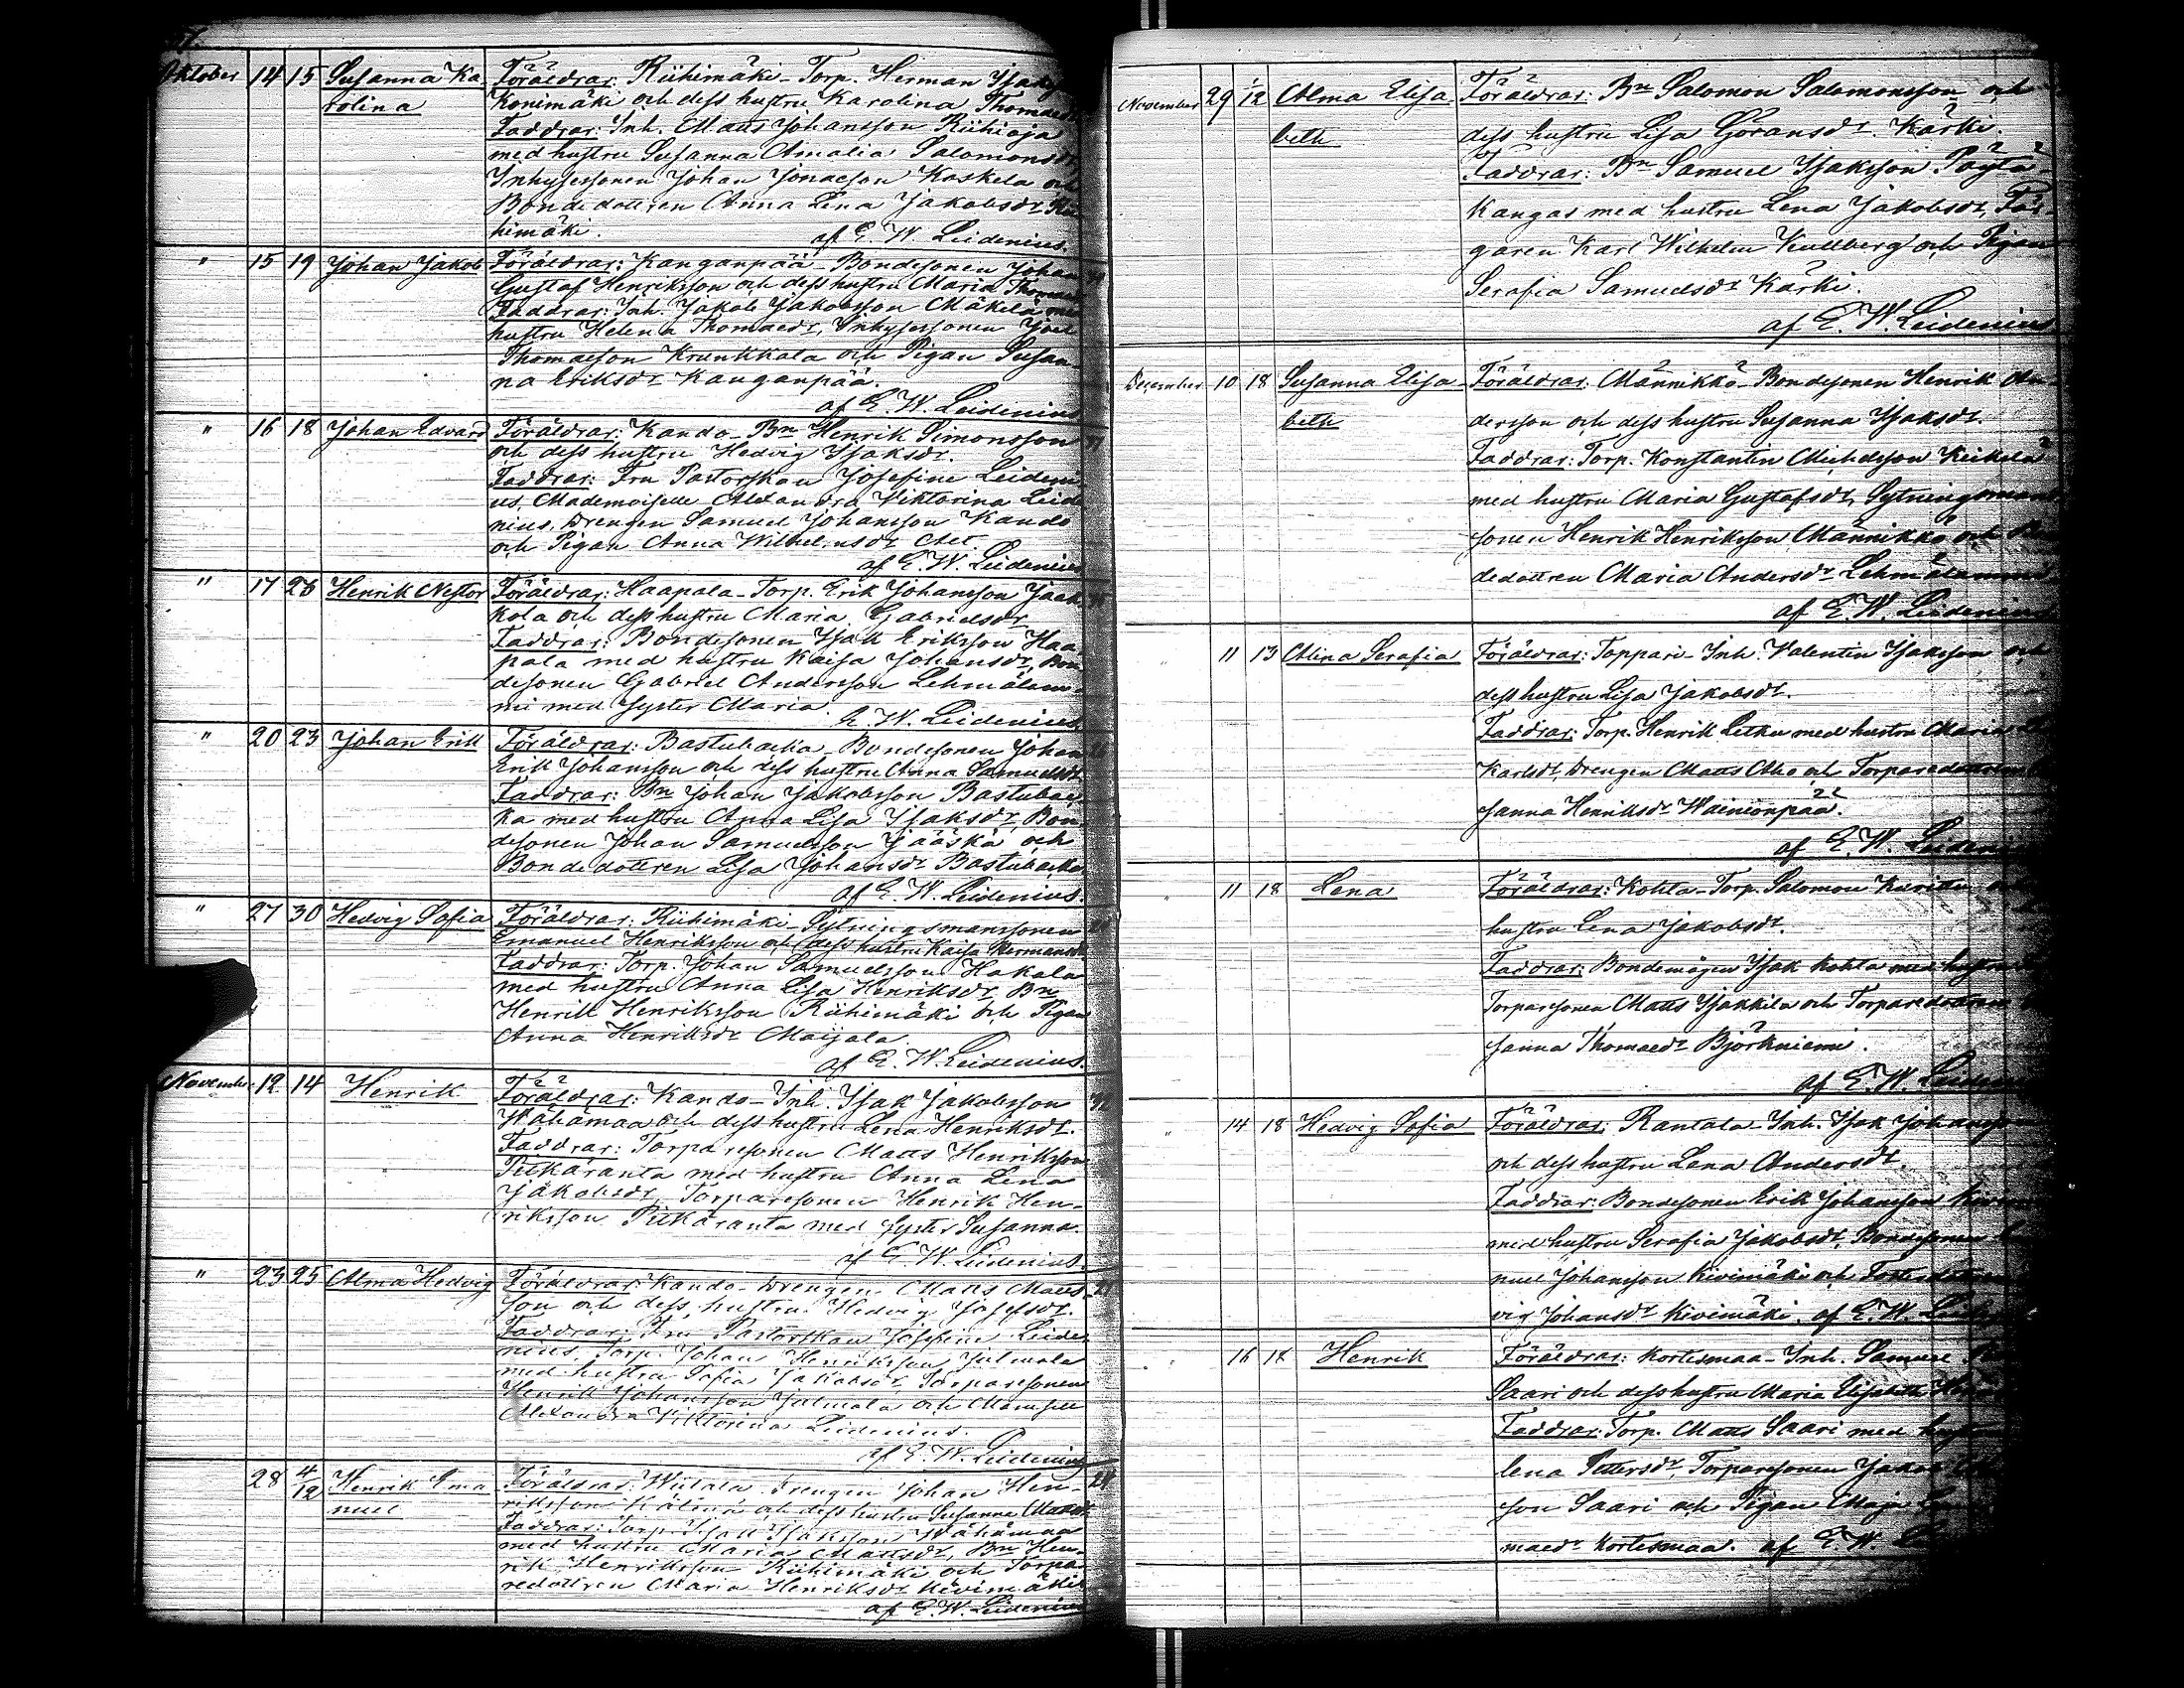 Oktober 14 15 Susanna Ka- Föräldrar: Riihimäki - Torp. Herman
rolina Konimäki och dess hustru Karolina
Faddrar: Inh. Matts Johansson Riihioja
med hustru Susanna Amalia Salomonsdr,
Inhysessonen Johan Jonasson Koskela och
Bondedottren Anna Lena Jakobsdr Rii-
himäki.
af E. W. Leidenius.
" 15 19 Johan Jakob Föräldrar: Kanganpää - Bondesonen Johan
Gustaf Henriksson och dess hustru Maria
Faddrar: Inh. Jakob Jakobsson Mäkelä med
hustru Helena Thomaedr, Inhysessonen
Thomasson Krunkkala och Pigan Susan-
na Eriksdr Kanganpää.
af E. W. Leidenius
" 16 18 Johan Edvard Föräldrar: Kando - Bn Henrik Simonsson
och dess hustru Hedvig Isaksdr.
Faddrar: Fru Pastorskan Josefine Leideni-
us, Mademoiselle Alexandra Viktorina Leide
nius, Drengen Samuel Johansson Kando
och Pigan Anna Wilhelmsdr
af E. W. Leidenius
" 17 26 Henrik Nestor Föräldrar: Haapala - Torp. Erik Johansson Jaak-
kola och dess hustru Maria Gabrielsdr
Faddrar: Bondesonen Isak Eriksson Haa-
pala med hustru Kaisa Johansdr, Bon
desonen Gabriel Andersson Lehmälam-
mi med syster Maria.
E. W. Leidenius.
" 20 23 Johan Erik Föräldrar: Bastubacka - Bondesonen Johan
Erik Johansson och dess hustru Anna Samuelsdr
Faddrar: Bn Johan Jakobsson Bastubac-
ka med hustru Anna Lisa Isaksdr, Bon
desonen Johan Samuelsson Jääskä och
Bondedottren Lisa Johansdr Bastubacka
af E. W. Leidenius.
" 27 30 Hedvig Sofia Föräldrar: Riihimäki - Sytningsmanssonen
Emanuel Henriksson och dess hustru Kaisa Hermansdr
Faddrar: Torp. Johan Samuelsson Hakala
med hustru Anna Lisa Henriksdr, Bn
Henrik Henriksson Riihimäki och Pigan
Anna Henriksdr Maijala.
af E. W. Leidenius.
November 12 14 Henrik Föräldrar: Kando - Inh. Isak Jakobsson
Wähämaa och dess hustru Lena Henriksdr.
Faddrar: Torparesonen Matts Henriksson
Pitkäranta med hustru Anna Lena
Jakobsdr, Torparesonen Henrik Hen-
riksson Pitkäranta med syster Susanna.
af E. W. Leidenius.
" 23 25 Alma Hedvig Föräldrar: Kando - Drengen Matts Matts-
son och dess hustru Hedvig Josefsdr.
Faddrar: Fru Pastorskan Josefine Leide
nius, Torp. Johan Henriksson Julmala
med hustru Sofia Jakobsdr, Torparesonen
Henrik Johansson Julmala och Mamsell
Alexandra Viktorina Leidenius.
af E. W. Leidenius
28 4/12 Henrik Ema Föräldrar: Wiitala Drengen Johan Hen-
nuel riksson och dess hustru Susanna Mattsdr
Faddrar: Torp. Isak Isaksson Wähämaa
med hustru Maria Mattsdr, Bn Hen-
rik Henriksson Riihimäki och Torpa-
redottren Maria Henriksdr Kivimäki
af E. W. Leidenius
November 29 1/12 Alma Elisa- Föräldrar: Bn Salomon Salomonsson och
beth dess hustru Lisa Göransdr Kärki.
Faddrar: Bn Samuel Isaksson Pöytä-
kangas med hustru Lena Jakobsdr, Fär-
garen Karl Wilhelm Kullberg och Pigan
Serafia Samuelsdr Kärki.
af E. W. Leidenius
December 10 18 Susanna Elisa- Föräldrar: Männikkö - Bondesonen Henrik An-
beth dersson och dess hustru Susanna Isaksdr.
Faddrar: Torp. Konstantin Michelsson Keikelä
med hustru Maria Gustafsdr, Sytningsmans
sonen Henrik Henriksson Männikkö och
dedottren Maria Andersdr Lehmälammi
af E. W. Leidenius
" 11 13 Alina Serafia Föräldrar: Toppari - Inh. Valentin Isaksson och
dess hustru Lisa Jakobsdr.
Faddrar: Torp. Henrik Letku med hustru Maria
Karlsdr, Drengen Matts Aho och Torparedottren
sanna Henriksdr Wainionpää.
af E. W. Leidenius
" 11 18 Lena Föräldrar: Kohta - Torp. Salomon
hustru Lena Jakobsdr.
Faddrar: Bondemågen Isak Kohta med hustru
Torparesonen Matts Isakkila och Torparedottren
sanna Thomaedr Björkniemi.
af E. W. Leidenius
" 14 18 Hedvig Sofia Föräldrar: Rantala - Inh. Isak Johansson
och dess hustru Lena Andersdr.
Faddrar: Bondesonen Erik Johansson
med hustru Serafia Jakobsdr, Bondesonen
nuel Johansson Kivimäki och
vig Johansdr Kivimäki. af E. W.
" 16 18 Henrik Föräldrar: Kortesmaa - Inh. Samuel
Saari och dess hustru Maria Elisabeth
Faddrar: Torp. Matts Saari med
lena Pettersdr, Torparesonen Jakob
son Saari och Pigan Maja
maedr Kortesmaa. af E. W.